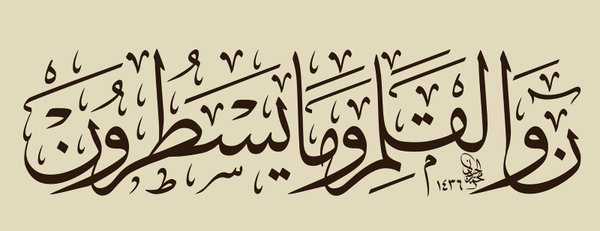 نٓ وَالْقَلَمِ وَمَا يَسْطُرُونَ
١٤٣٦